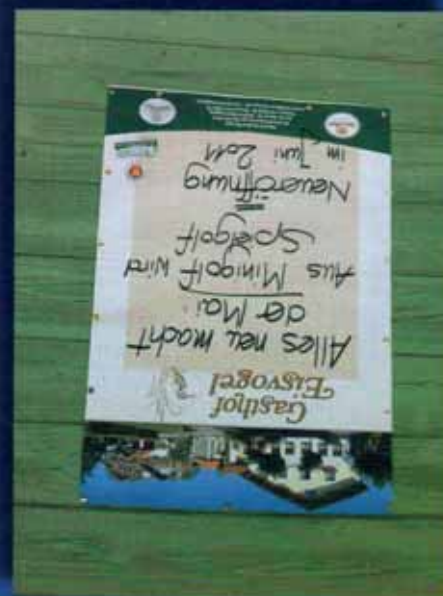 Gasthof
Eisvogel
Alles neu macht
der Mai
Aus Minigolf wird
Spaßgolf
Neueröffnung
im Juni 2011